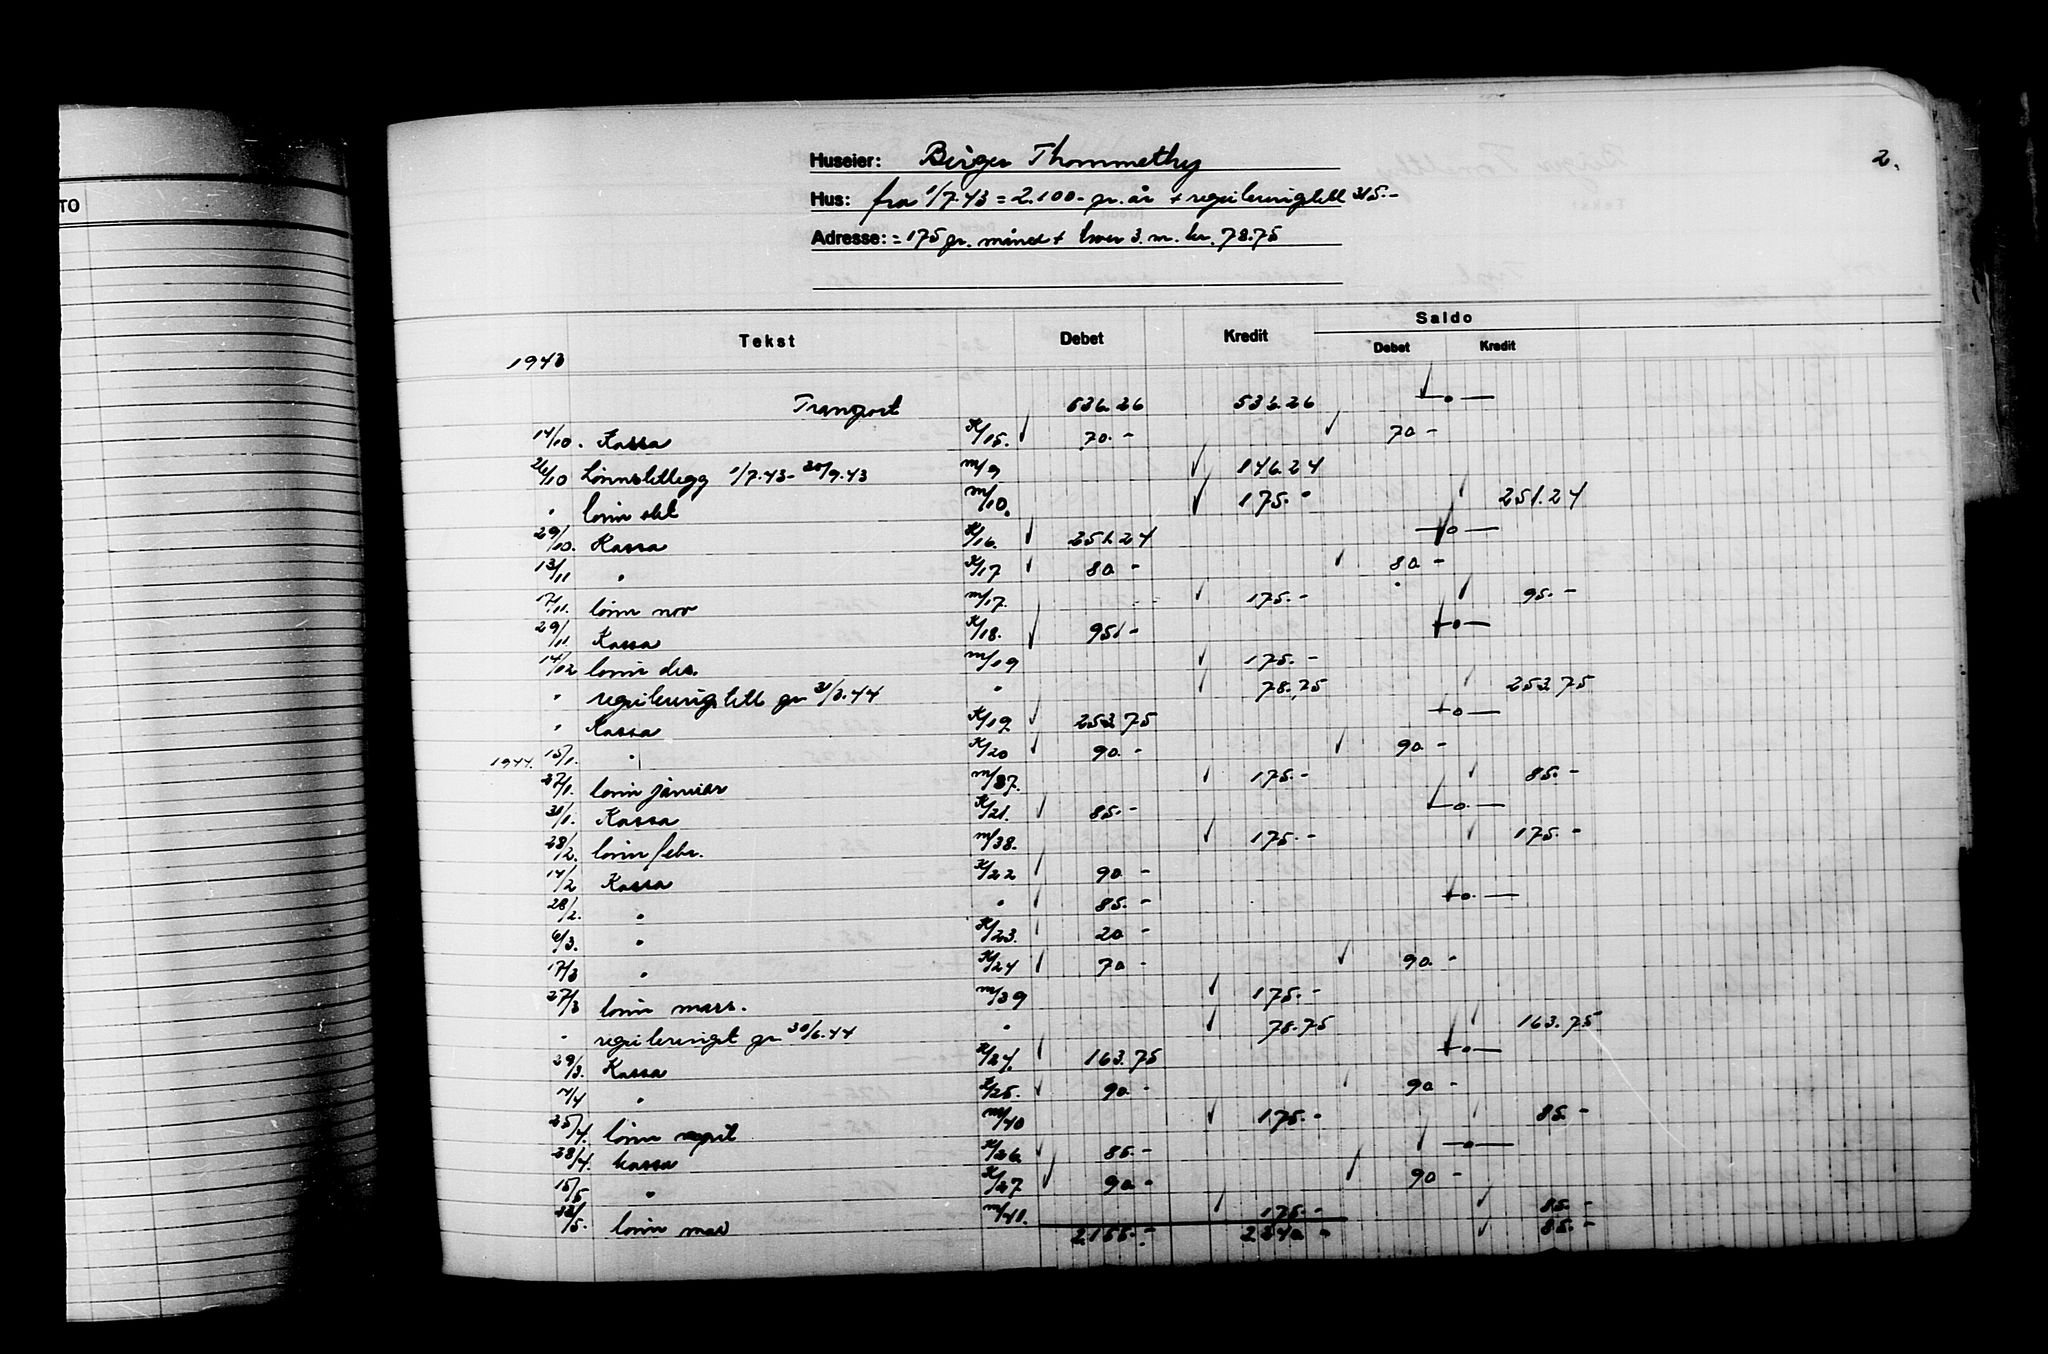 TO
2.
Huseier: Birger Thommethy
Hus: fra 1/7.43 = 2.100.- pr. år + reguleringtill 315.-
Adresse: = 175 pr. måned + hver 3. m. kr. 78.75
Saldo
Tekst Debet Kredit Debet Kredit
1943
Transport 536.26 536.26 —o—
14/10. Kassa K/15. 70.- 70.-
26/10 Lønnstillegg 1/7.43 - 30/9.43 m/9 146.24
" lønn okt m/10. 175.- 251.24
29/10. Kassa K/16. 251.24 —o—
13/11 " K/17 80.- 80.-
17/11. lønn nov m/17. 175.- 95.-
29/11 Kassa K/18. 95.- —o—
14/12 lønn des. m/19 175.-
" reguleringstill pr 31/3.44 " 78.75 253.75
" Kassa K/19. 253.75 —o—
1944. 15/1. " K/20 90.- 90.-
27/1. lønn januar m/37. 175.- 85.-
31/1. Kassa K/21. 85.- —o—
28/2. lønn febr. m/38. 175.- 175.-
14/2 Kassa K/22 90.-
28/2. " " 85.- —o—
6/3. " K/23. 20.-
17/3 " K/24 70.- 90.-
27/3 lønn mars. m/39 175.-
" reguleringst pr 30/6.44 " 78.75 163.75
29/3. Kassa K/24. 163.75 —o—
14/4 " K/25. 90.- 90.-
25/4. lønn april m/40 175.- 85.-
28/4. kassa K/26. 85.- —o—
15/5 " K/27 90.- 90.-
lønn mai m/41. 175.- 85.-
2155.- 2240.- 85.-